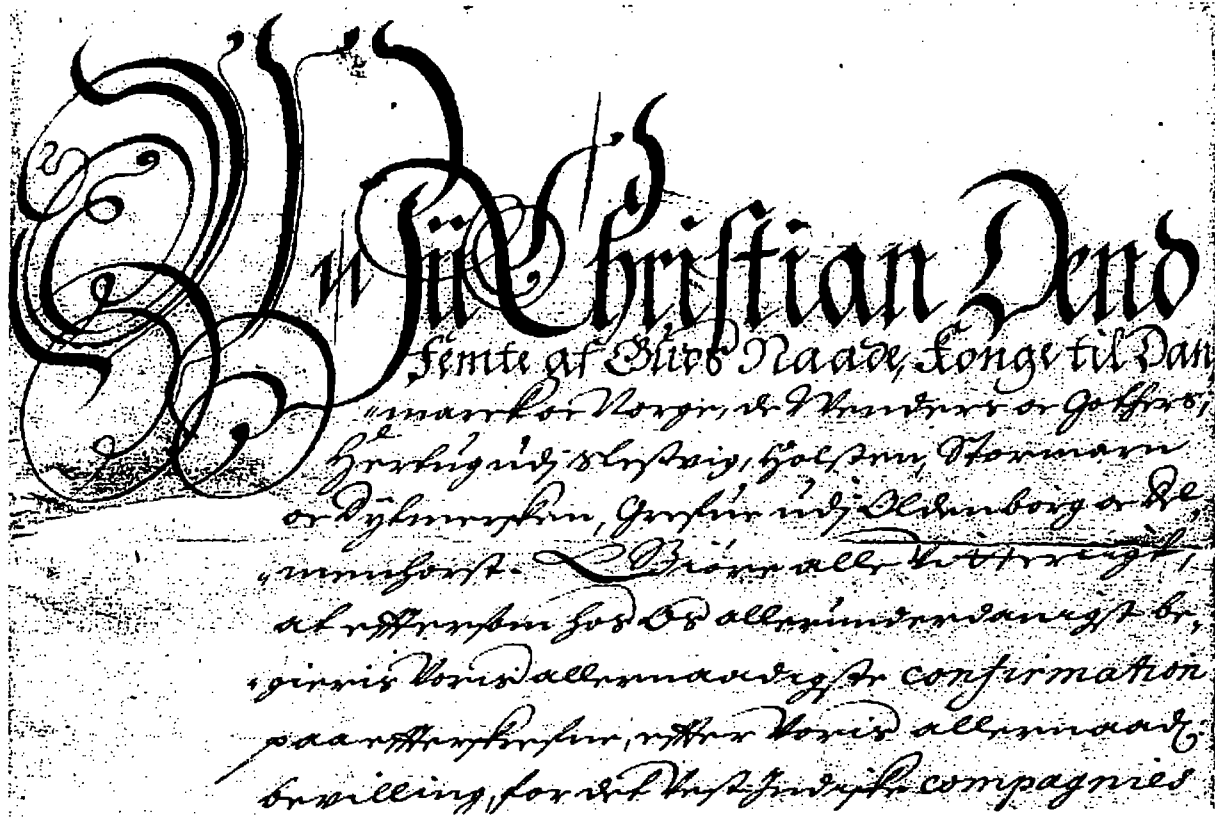 Wii Christian Dend
femte af Guds Naade, Konge til Dan
marck oc Norge, de Wenders oc Gothers,
Hertug udj Slesvig, Holsten, Stormarn
oc Dytmersken, Grefue udj Oldenborg oc Del,
menhorst. Giöre alle vitterligt,
at effttersom hos Os allerunderdanigst be,
gieris Voris allernaadigste confirmation
paa effterskrefne, effter Voris allernaad:
bevilling, for det Vest Indiske compagnies